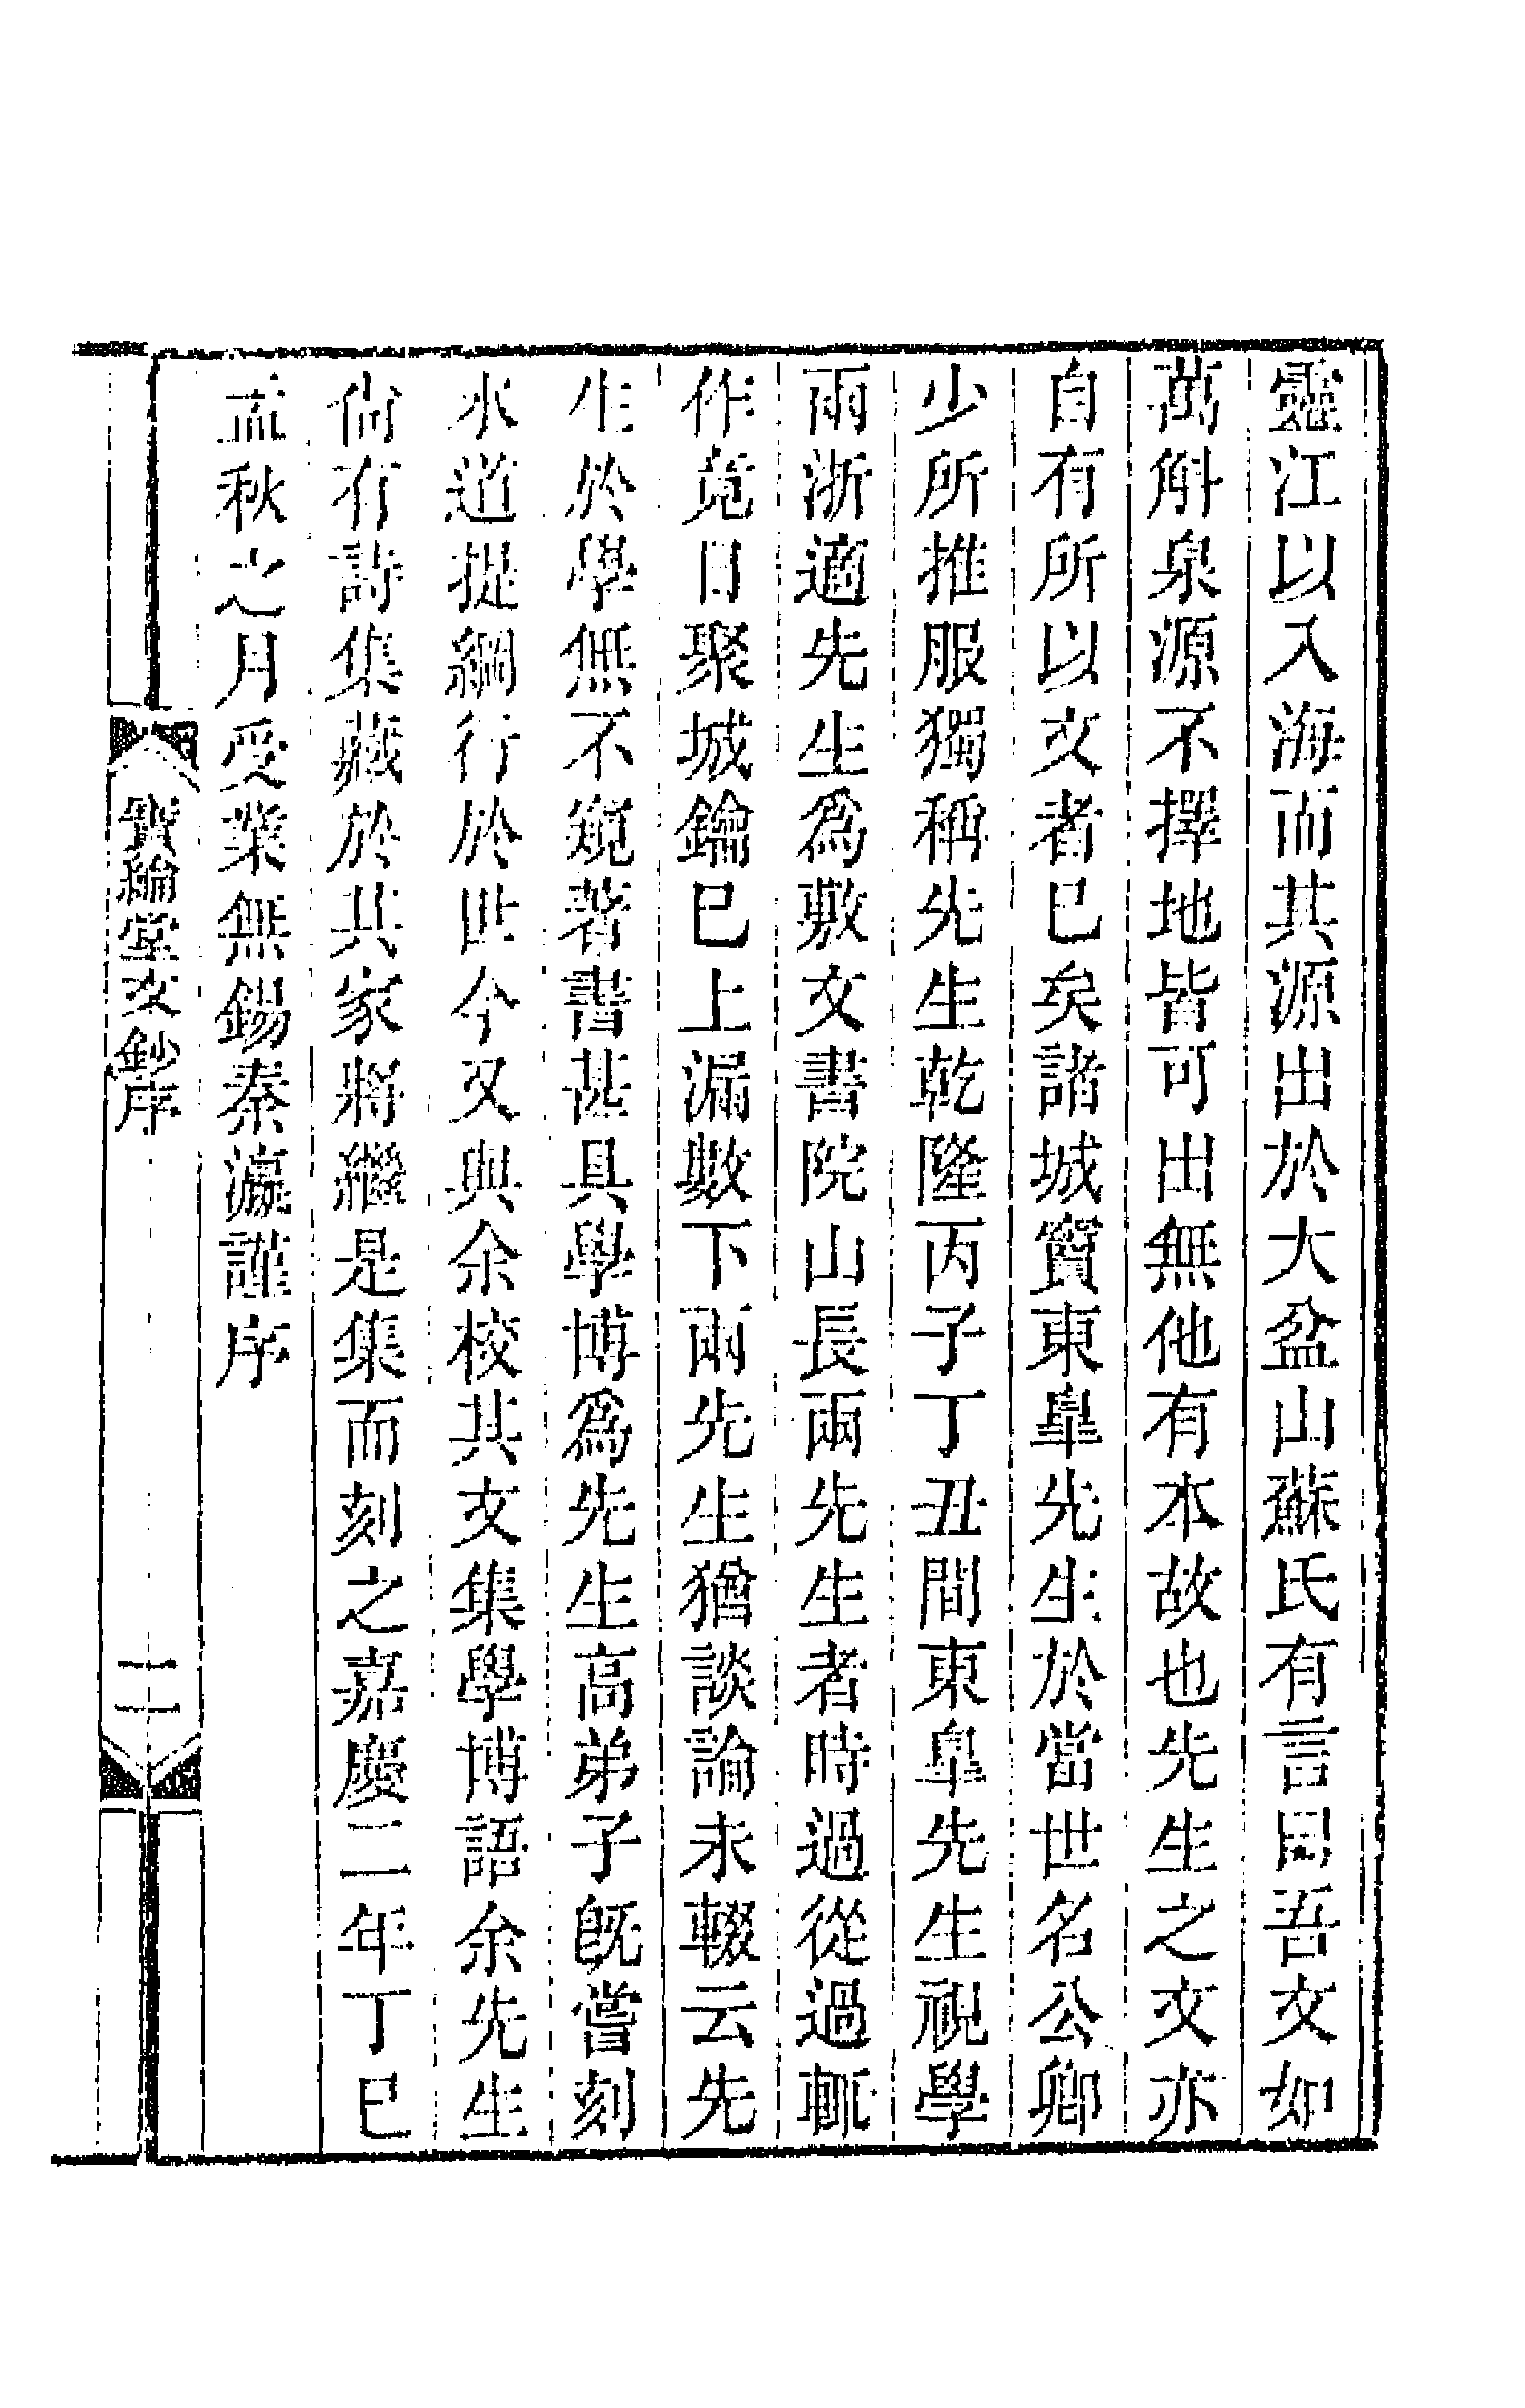 靈江以入海而其源出於大盆山蘇氏有言曰吾文如
萬斛泉源不擇地皆可出無他有本故也先生之文亦
自有所以文者已矣諸城竇東臯先生於當世名公卿
少所推服獨稱先生乾隆丙子丁丑間東臯先生視學
兩浙適先生爲敷文書院山長兩先生者時過從過輒
作竟日聚城鑰已上漏數下兩先生猶談論未輟云先
生於學無不窺著書甚具學博爲先生高弟子旣嘗刻
水道提綱行於世今又與余校其文集學博語余先生
尙有詩集藏於其家將繼是集而刻之嘉慶二年丁巳
孟秋之月受業無錫秦瀛謹序
寶綸堂文鈔序
二